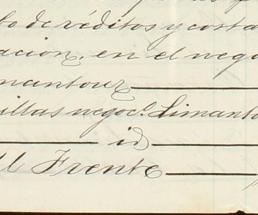 de réditos y costa
acion, en el nego
mantour
illas negoc. Limanto
id
Al Frente